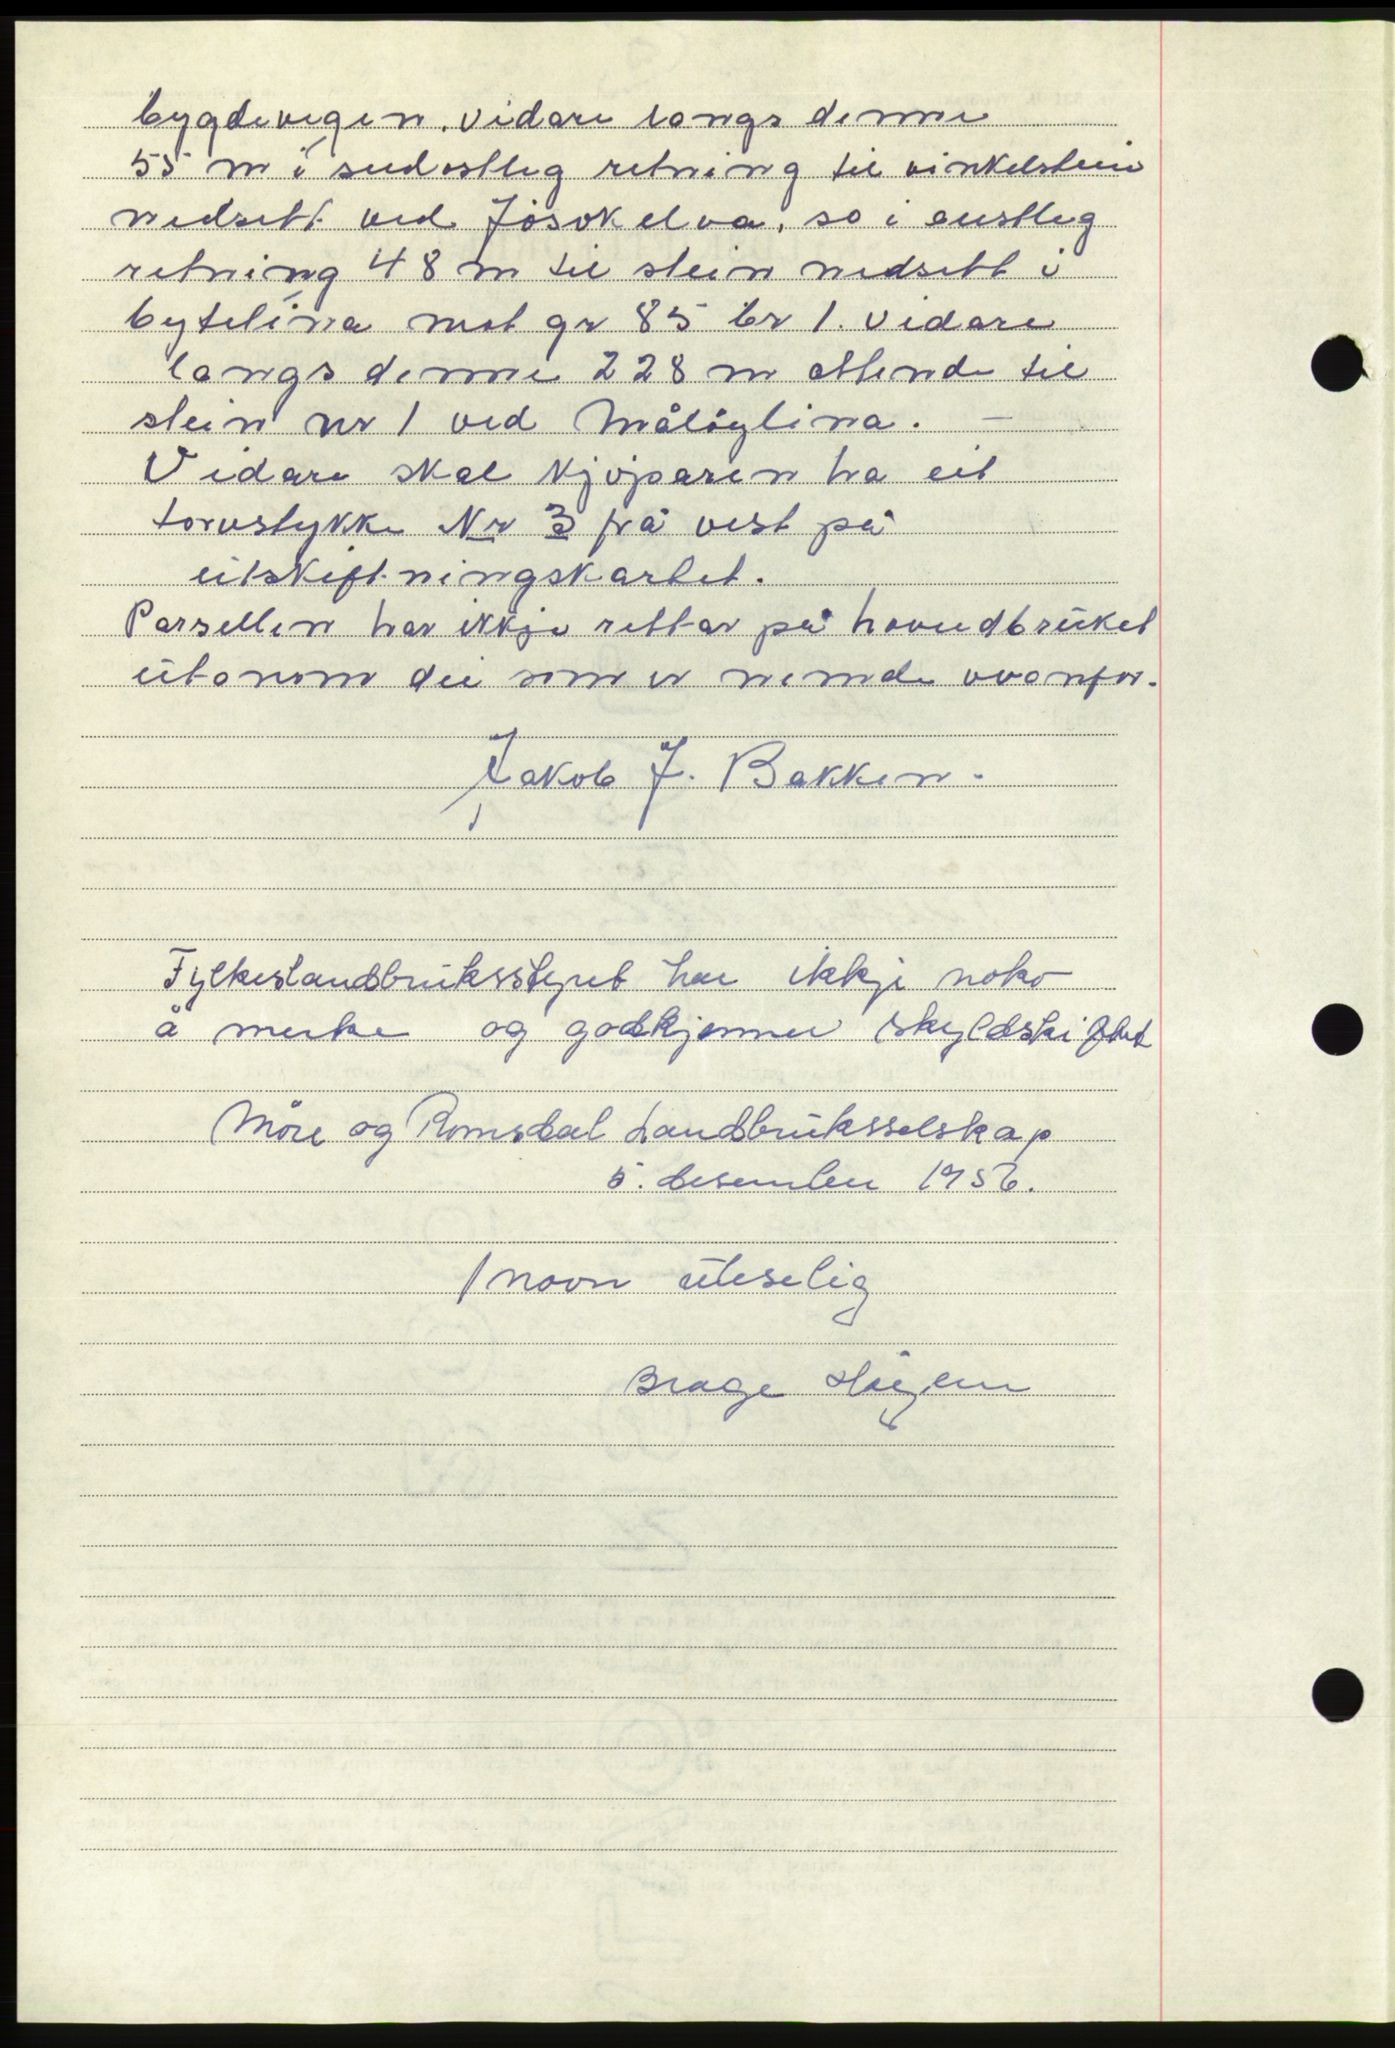 bygdevegen, vidare langs denne
55 m i sudostleg retning til vinkelstein
nedsett ved Jøsokelva, so i austleg
retning 48 m til stein nedsett i
bytelina mot gr 85 br 1. vidare
langs denne 228 m attende til
stein nr 1 ved Måløylina. –
Vidare skal kjøparen ha eit
torvstykke Nr 3 frå vest på
utskiftningskartet.
Parsellen har ikkje rettar på hovudbruket
utanom dei som er nemde ovanfor.
Jakob J. Bakken.
Fylkeslandbruksstyret har ikkje noko
å merke og godkjenner skyldskiftet
Möre og Romsdal Landbruksselskap
5. desember 1956.
/ navn uleselig
Brage